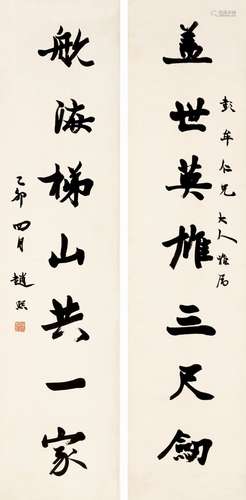 彭年仁兄大人雅属
盖世英雄三尺劒
航海梯山共一家
乙卯四月 趙熙